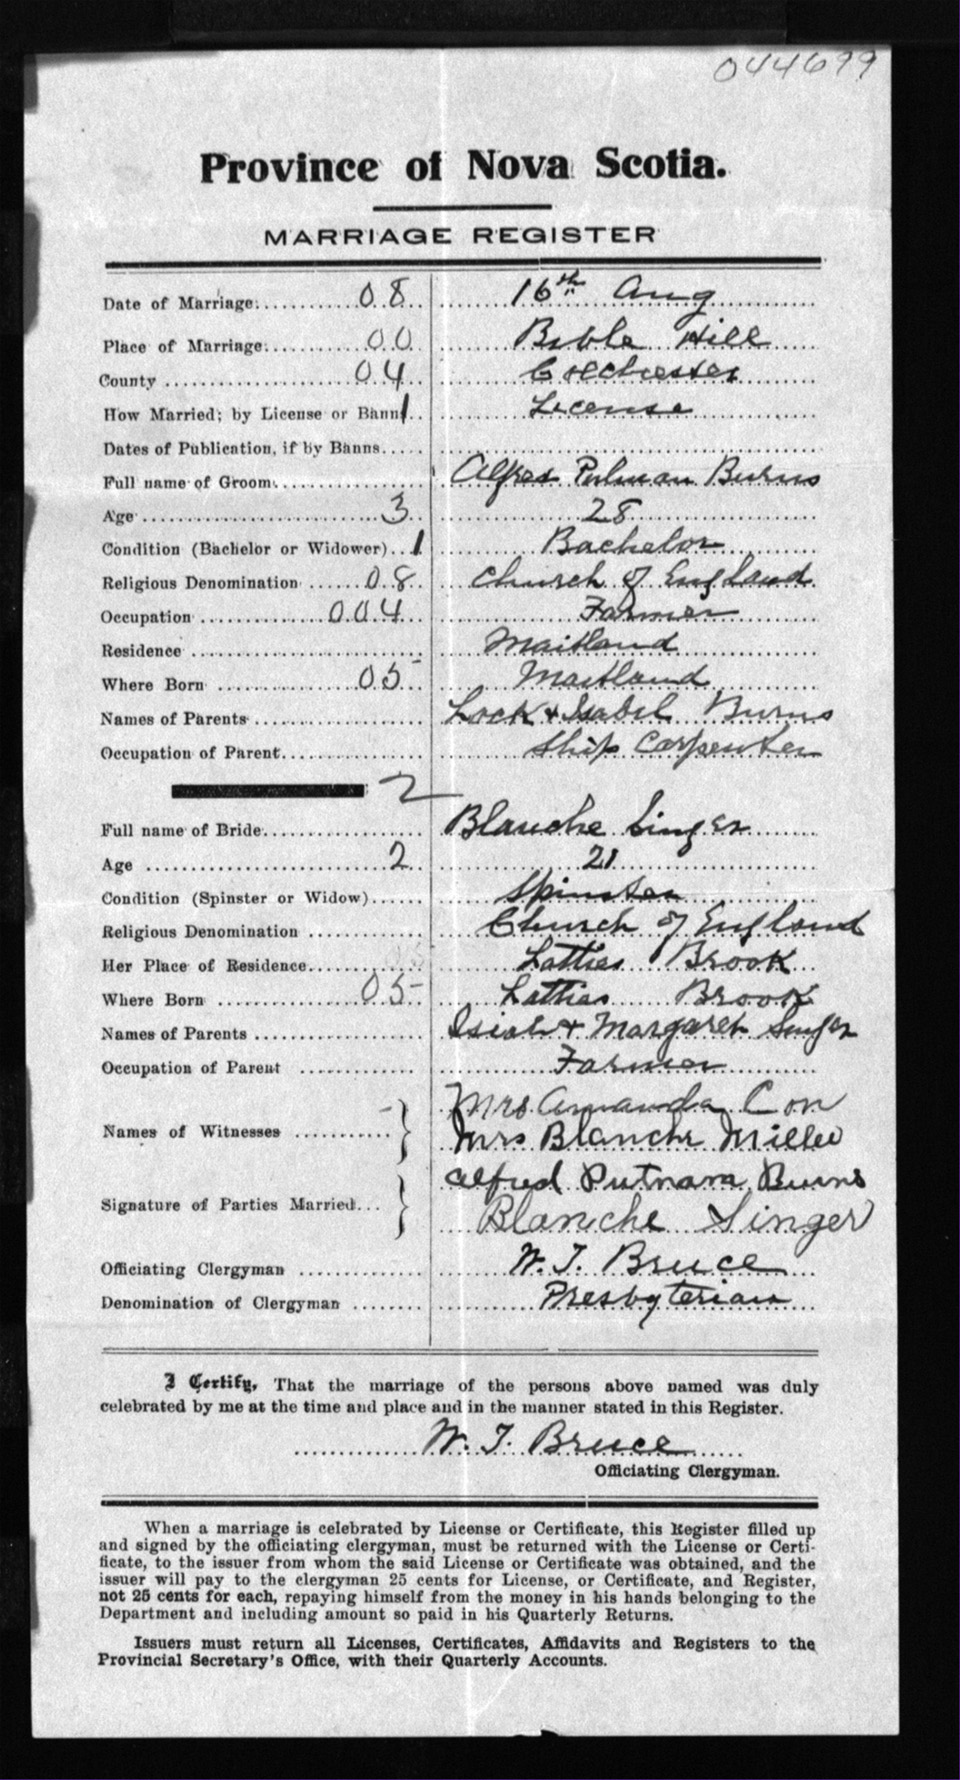 044699
Province of Nova Scotia.
MARRIAGE REGISTER
Date of Marriage. 08 16th Aug
Place of Marriage. 00 Bible Hill
County 04 Colchester
How Married; by License or Bann 1 License
Dates of Publication, if by Banns
Full name of Groom. Alfred Putman Burns
Age 3 28
Condition (Bachelor or Widower) 1 Bachelor
Religious Denomination 08 Church of England
Occupation 004 Farmer
Residence Maitland
Where Born 05 Maitland
Names of Parents Lock + Isabel Burns
Occupation of Parent. Ship Carpenter
2
Full name of Bride. Blanche Singer
Age 2 21
Condition (Spinster or Widow) Spinster
Religious Denomination Church of England
Her Place of Residence 05 Latties Brook
Where Born 05 Latties Brook
Names of Parents Isiah + Margaret Singer
Occupation of Parent Farmer
Mrs Amanda Con
Names of Witnesses Mrs Blanche Miller
Alfred Putnam Burns
Signature of Parties Married Blanche Singer
Officiating Clergyman W. T. Bruce
Denomination of Clergyman Presbyterian
I Certify, That the marriage of the persons above named was duly
celebrated by me at the time and place and in the manner stated in this Register.
W. T. Bruce
Officiating Clergyman.
When a marriage is celebrated by License or Certificate, this Register filled up
and signed by the officiating clergyman, must be returned with the License or Certi-
ficate, to the issuer from whom the said License or Certificate was obtained, and the
issuer will pay to the clergyman 25 cents for License, or Certificate, and Register,
not 25 cents for each, repaying himself from the money in his hands belonging to the
Department and including amount so paid in his Quarterly Returns.
Issuers must return all Licenses, Certificates, Affidavits and Registers to the
Provincial Secretary's Office, with their Quarterly Accounts.